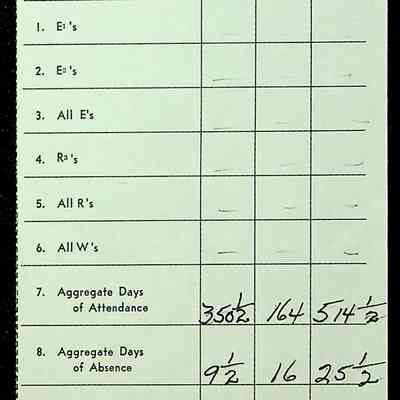 1. E¹'s — — —
2. E²'s — — —
3. All E's — — —
4. R²'s — — —
5. All R's — — —
6. All W's — — —
7. Aggregate Days
of Attendance 350½ 164 514½
8. Aggregate Days
of Absence 9½ 16 25½